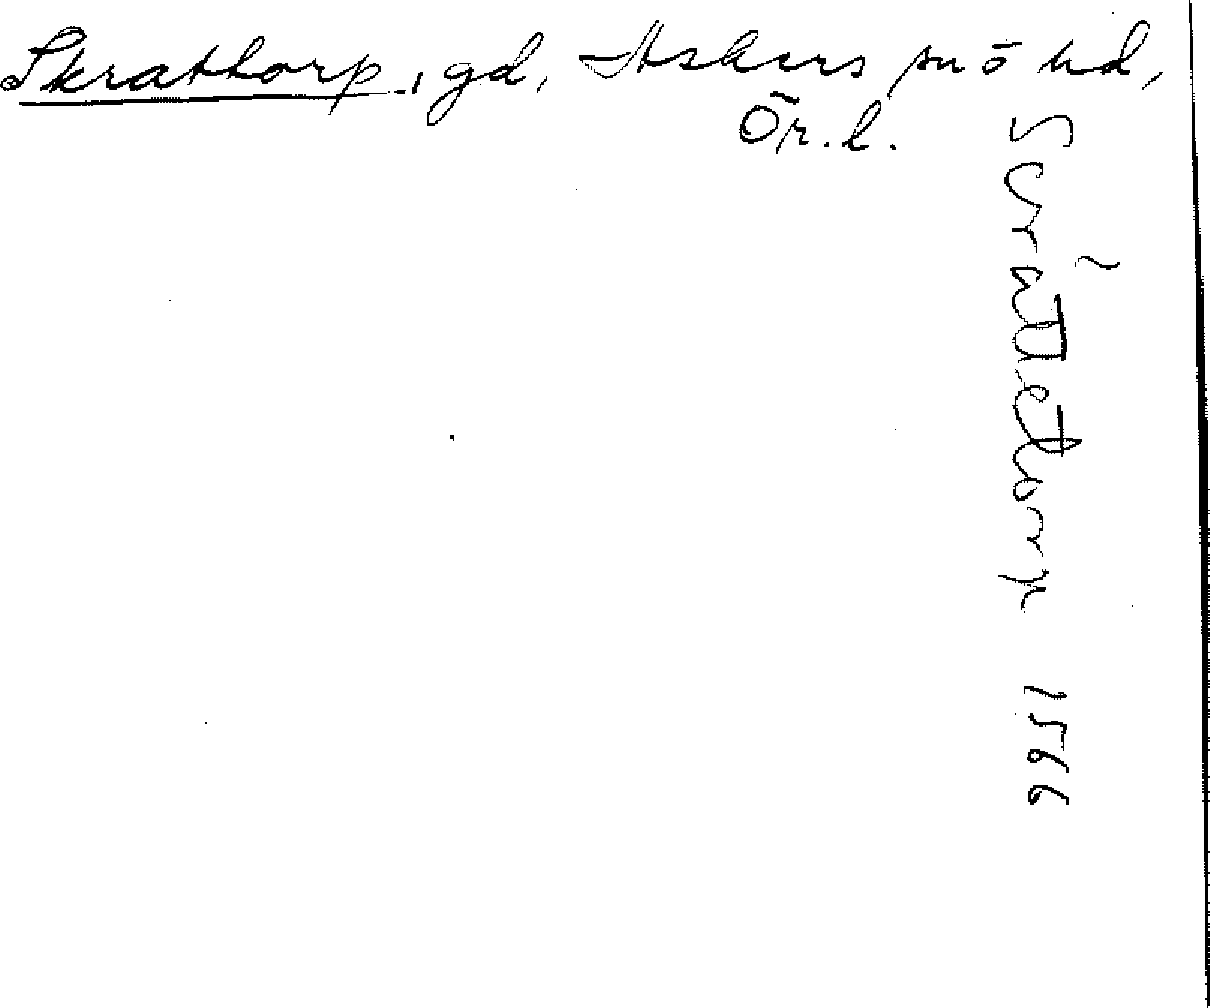 Skrattorp, gd, Askers sn ō hd,
Ör. l.
Scrattetorp 1566